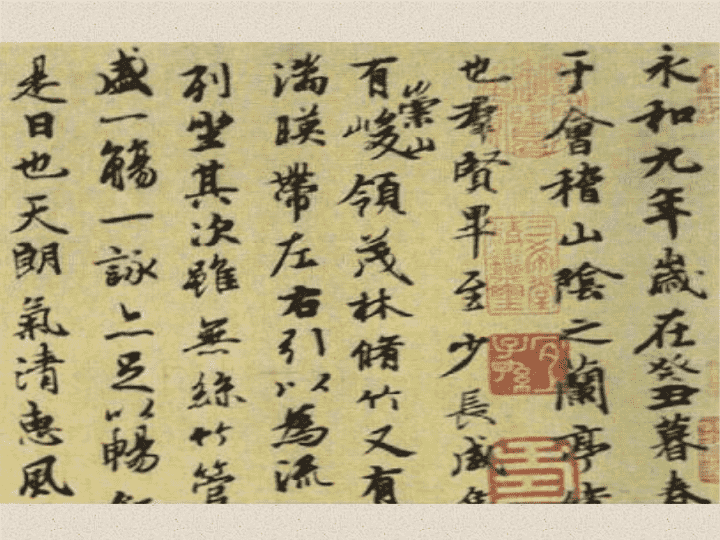 永和九年歲在癸丑暮春
于會稽山陰之蘭亭
也羣賢畢至少長咸
有崇山峻領茂林脩竹又有
湍暎帶左右引以為流
列坐其次雖無絲竹管
盛一觴一詠亦足以暢
是日也天朗氣清惠風
三希堂精鑑璽
宜子孫